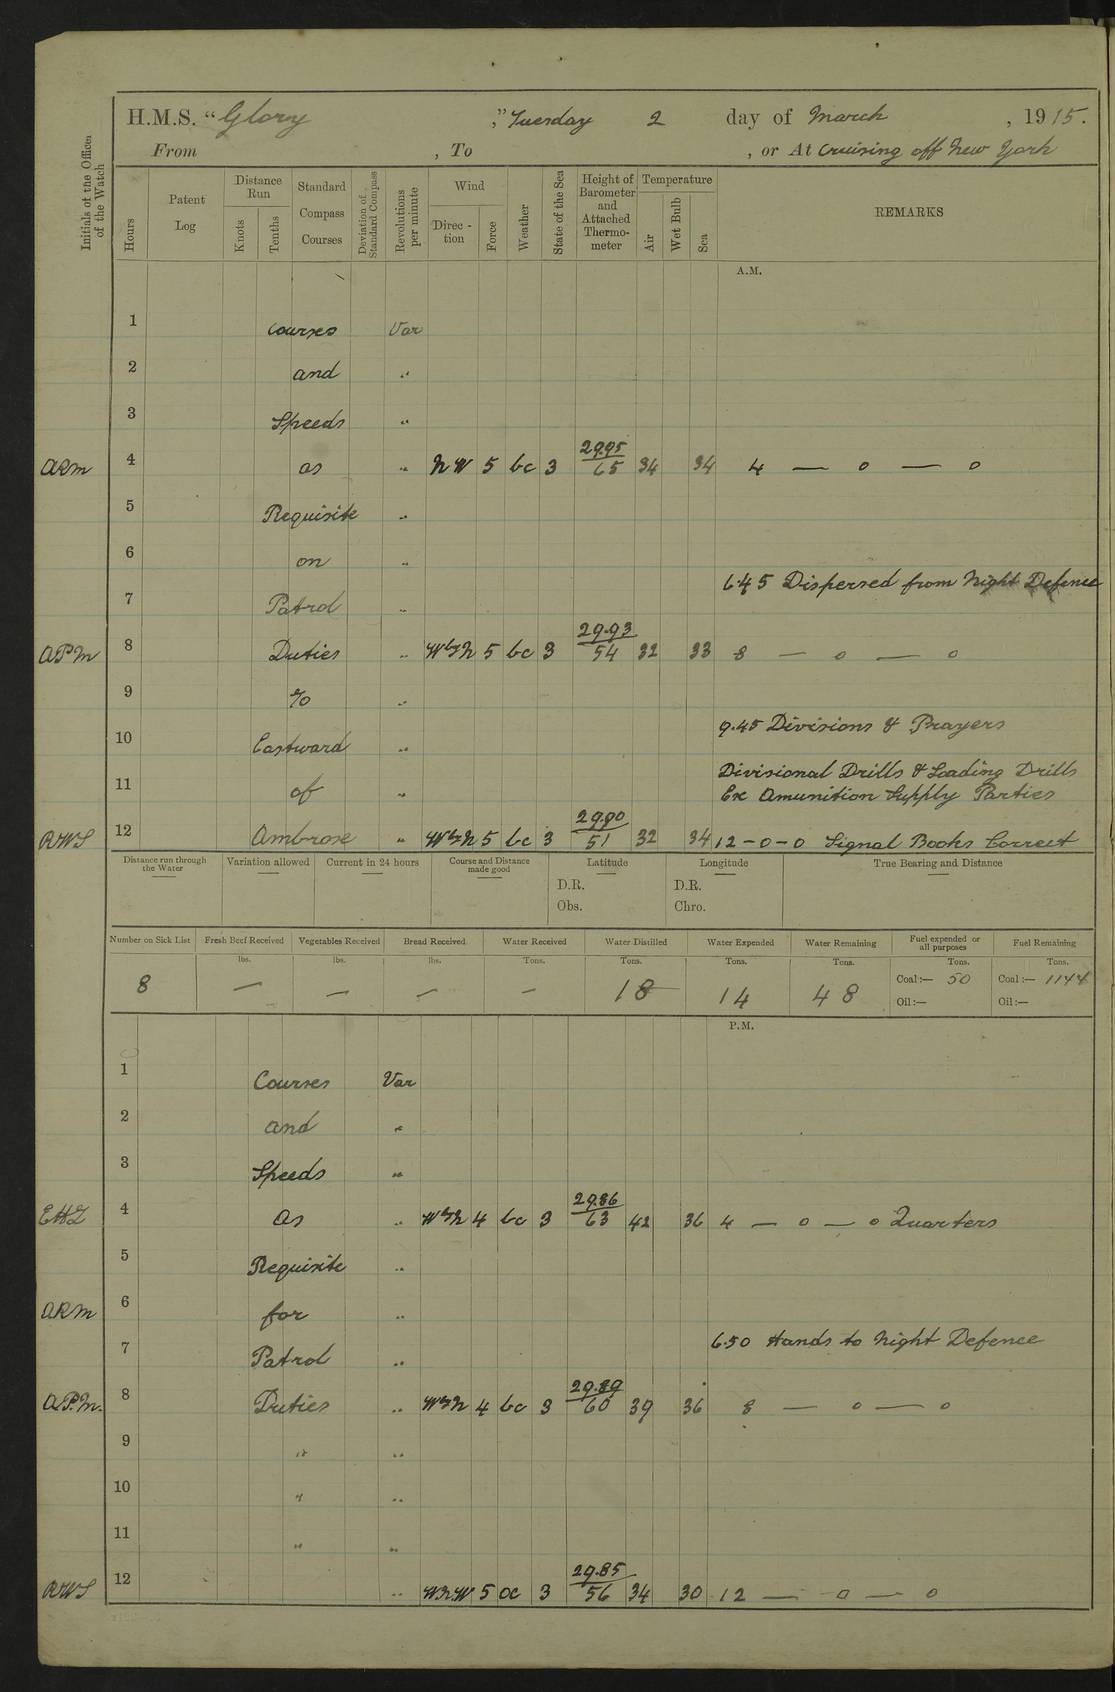 H.M.S. "Glory ," Tuesday 2 day of March , 1915.
From , To , or At Cruising off New York
Initials of the Officer of the Watch
Hours
Patent Log
Distance Run
Knots
Tenths
Standard Compass Courses
Deviation of Standard Compass
Revolutions per minute
Wind
Direc-tion
Force
Weather
State of the Sea
Height of Barometer and Attached Thermo-meter
Temperature
Air
Wet Bulb
Sea
REMARKS
A.M.
1 Courses Var
2 and "
3 Speeds "
29.95
ARM 4 as " NW 5 bc 3 65 34 34 4 — 0 — 0
5 Requisite "
6 on "
6.45 Dispersed from Night Defence
7 Patrol "
29.93
APM 8 Duties " WbyN 5 bc 3 54 32 33 8 — 0 — 0
9 To "
9.45 Divisions & Prayers
10 Eastward "
Divisional Drills & Loading Drills
11 of " Ex Amunition Supply Parties
29.90
RWS 12 Ambrose " WbyN 5 bc 3 51 32 34 12 - 0 - 0 Signal Books Correct
Distance run through the Water
Variation allowed
Current in 24 hours
Course and Distance made good
Latitude
D.R.
Obs.
Longitude
D.R.
Chro.
True Bearing and Distance
Number on Sick List
Fresh Beef Received
Vegetables Received
Bread Received
Water Received
Water Distilled
Water Expended
Water Remaining
Fuel expended or all purposes
Fuel Remaining
lbs. lbs. lbs. Tons. Tons. Tons. Tons. Tons. Tons.
8 — — — — 18 14 48 Coal:— 50 Coal:— 1144
Oil:— Oil:—
P.M.
1 Courses Var
2 and "
3 Speeds "
29.86
4 As " WbyN 4 bc 3 63 42 36 4 — 0 — 0 Quarters
5 Requisite "
ARM 6 for "
6.50 Hands to Night Defence
7 Patrol "
29.89
A.P.M. 8 Duties " WbyN 4 bc 3 60 39 36 8 — 0 — 0
9 " "
10 " "
11 " "
29.85
RWS 12 " WNW 5 oc 3 56 34 30 12 — 0 — 0